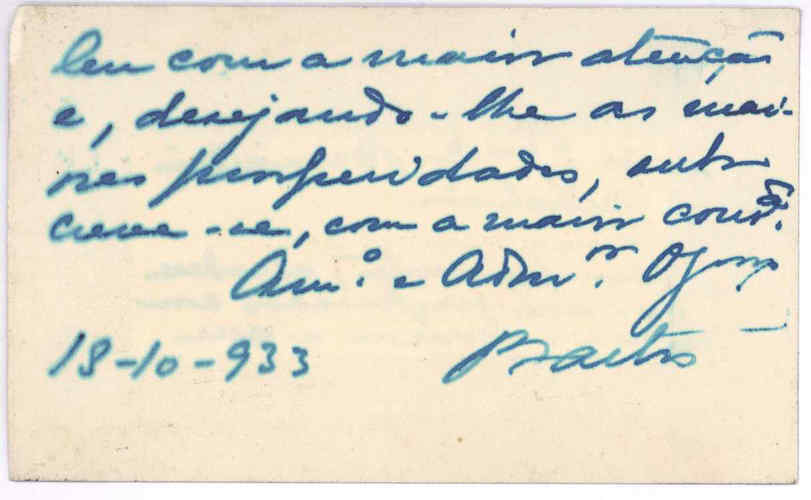 leu com a maior atenção
e, desejando-lhe as mai-
ores prosperidades, subs
creve-se, com a maior consᵈ.
Am.º e Adm.ʳ
18-10-933